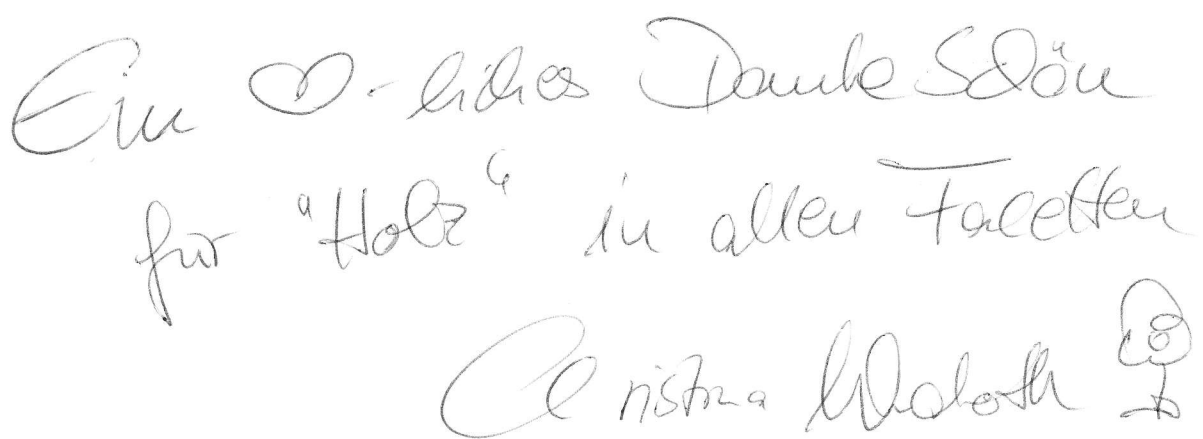 Ein ♡-liches Danke Schön
für "Holz" in allen Facetten
Christina